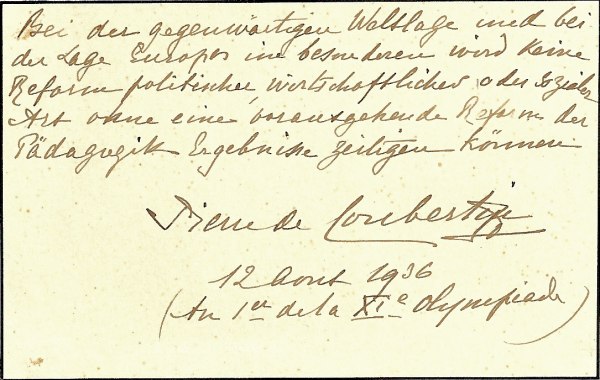 Bei der gegenwärtigen Weltlage und bei
der Lage Europas im besonderen wird keine
Reform politischer, wirtschaftlicher oder sozialer
Art ohne eine vorausgehende Reform der
Pädagogik Ergebnisse zeitigen können
Pierre de Coubertin
12 Aout 1936
(An 1er de la XIe Olympiade)